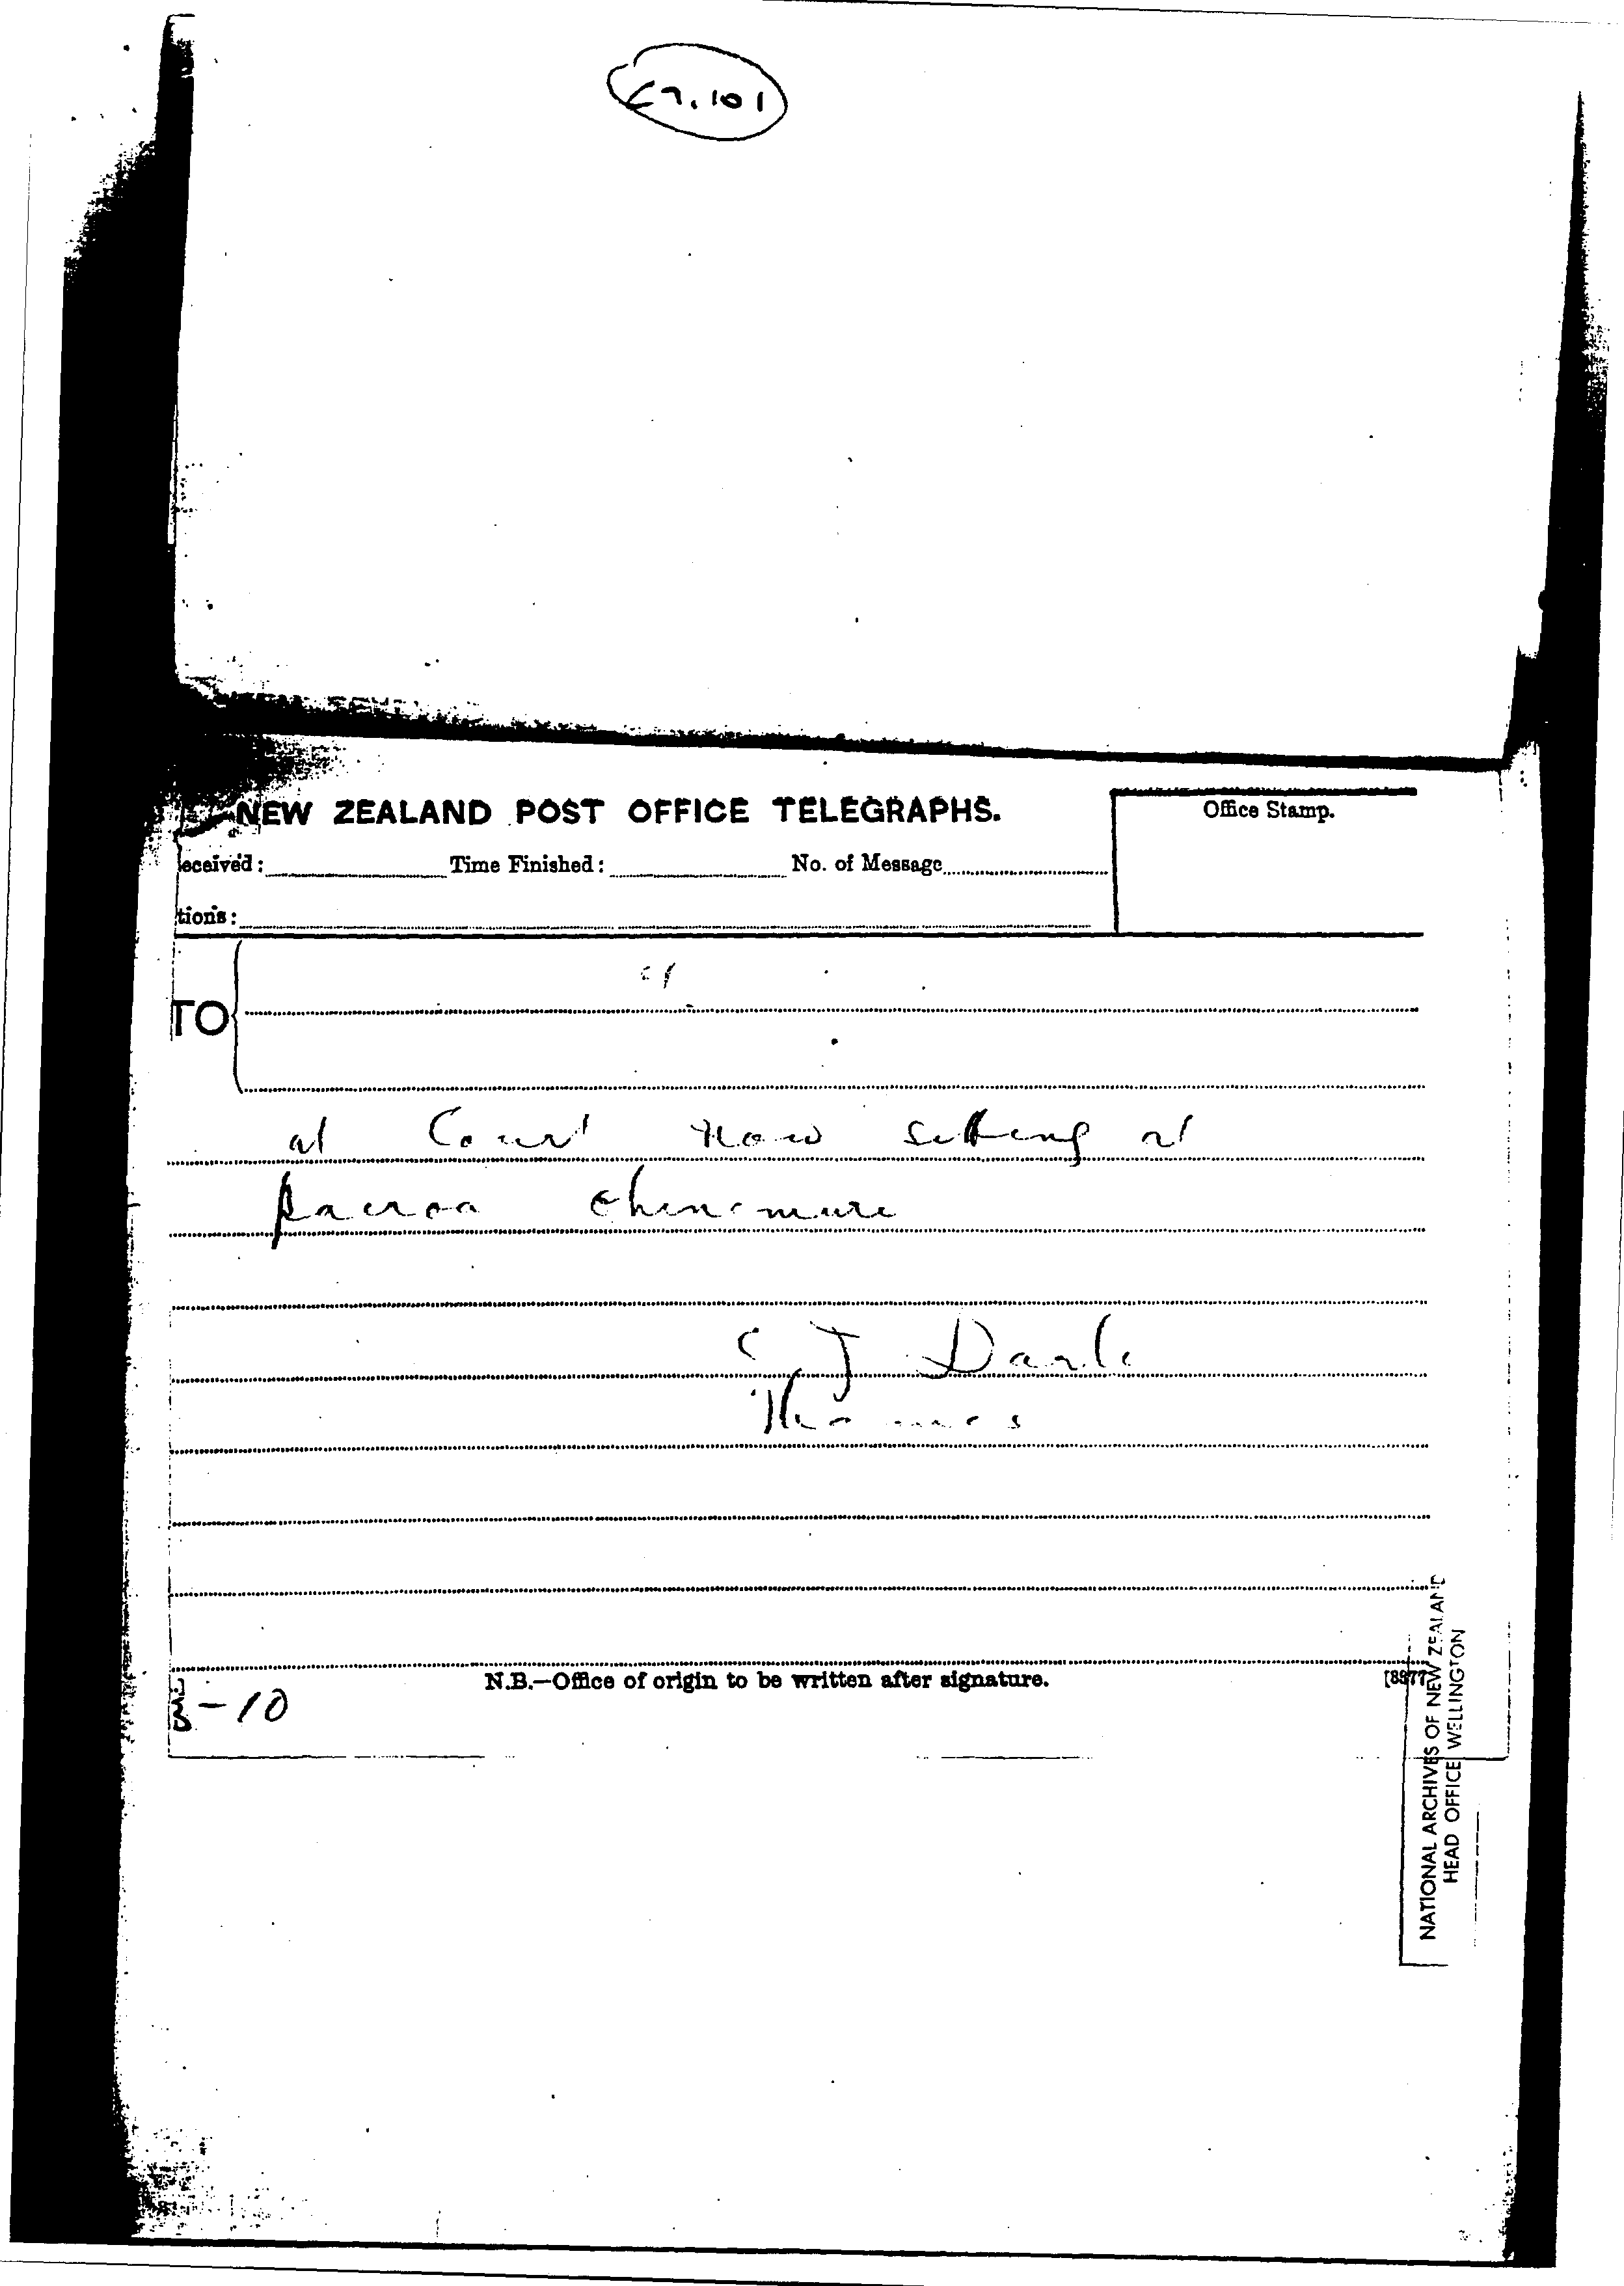 E7.101
NEW ZEALAND POST OFFICE TELEGRAPHS.
Office Stamp.
eceived: Time Finished: No. of Message
tions:
TO
at Court now sitting at
paeroa ohinemuri
C J Dearle
Thames
N.B.—Office of origin to be written after signature.
[8977
-10
NATIONAL ARCHIVES OF NEW ZEALAND
HEAD OFFICE WELLINGTON